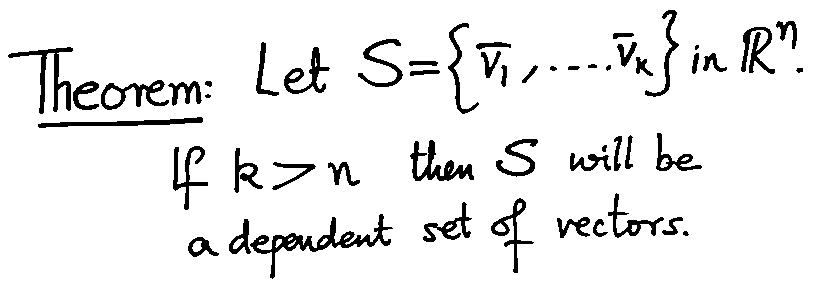 Theorem: Let S={v̄₁,....v̄ₖ} in ℝⁿ.
If k>n then S will be
a dependent set of vectors.